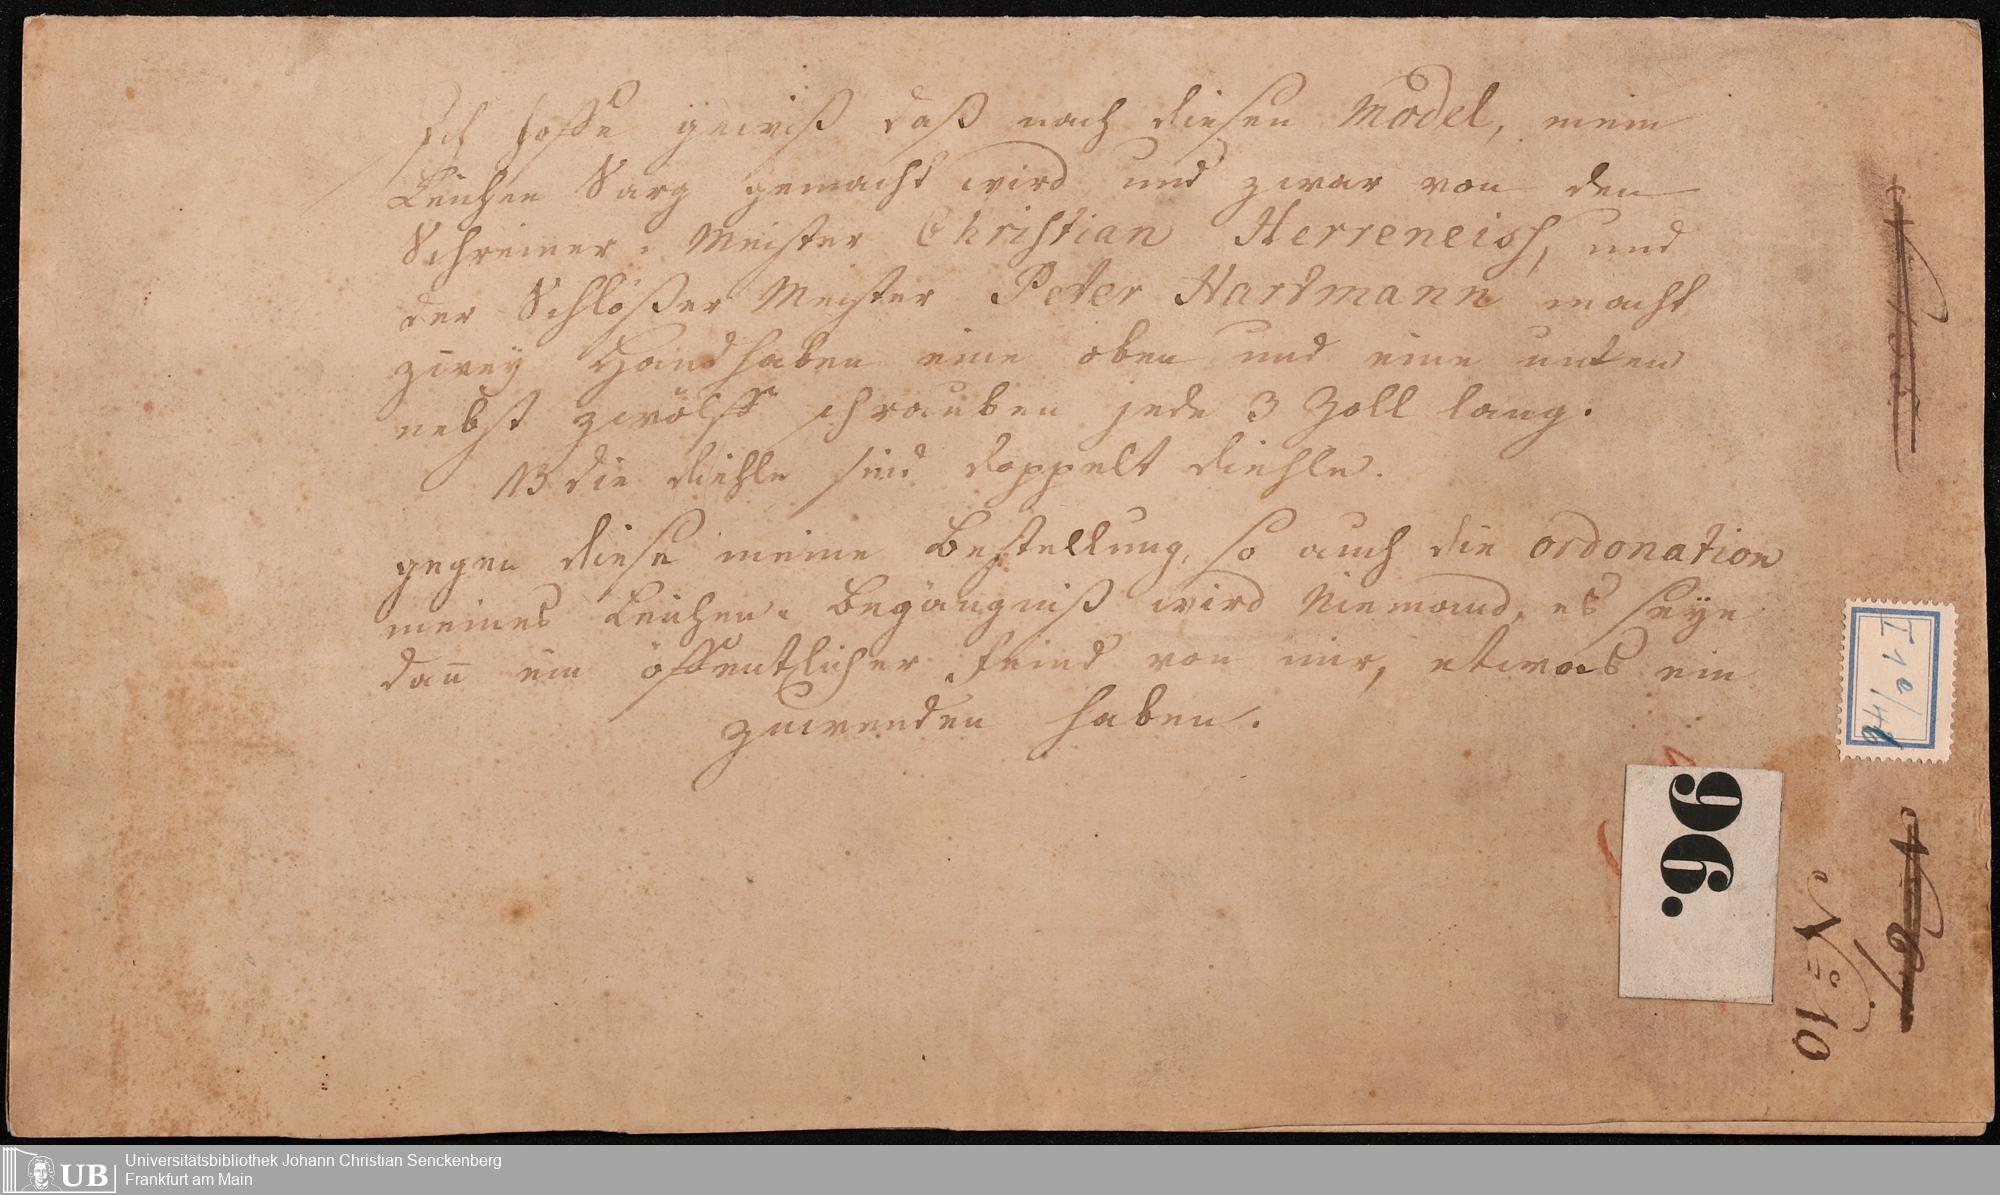 Ich hoffe gewiß daß nach diesen Model, mein
Leichen Sarg gemacht wird und zwar von den
Schreiner-Meister Christian Herreneisch, und
der Schlößer Meister Peter Hartmann macht
zwey Handhaben eine oben und eine unten
nebst zwölff schrauben jede 3 Zoll lang.
NB die diehle sind doppelt diehle.
gegen diese meine Bestellung, so auch die ordonation
meines Leichen-Begängniß wird Niemand, es seye
dan̄ ein öffentlicher Feind von mir, etwas ein
zuwenden haben.
I 1e/46
96.
No 6
No 10
UB
Universitätsbibliothek Johann Christian Senckenberg
Frankfurt am Main